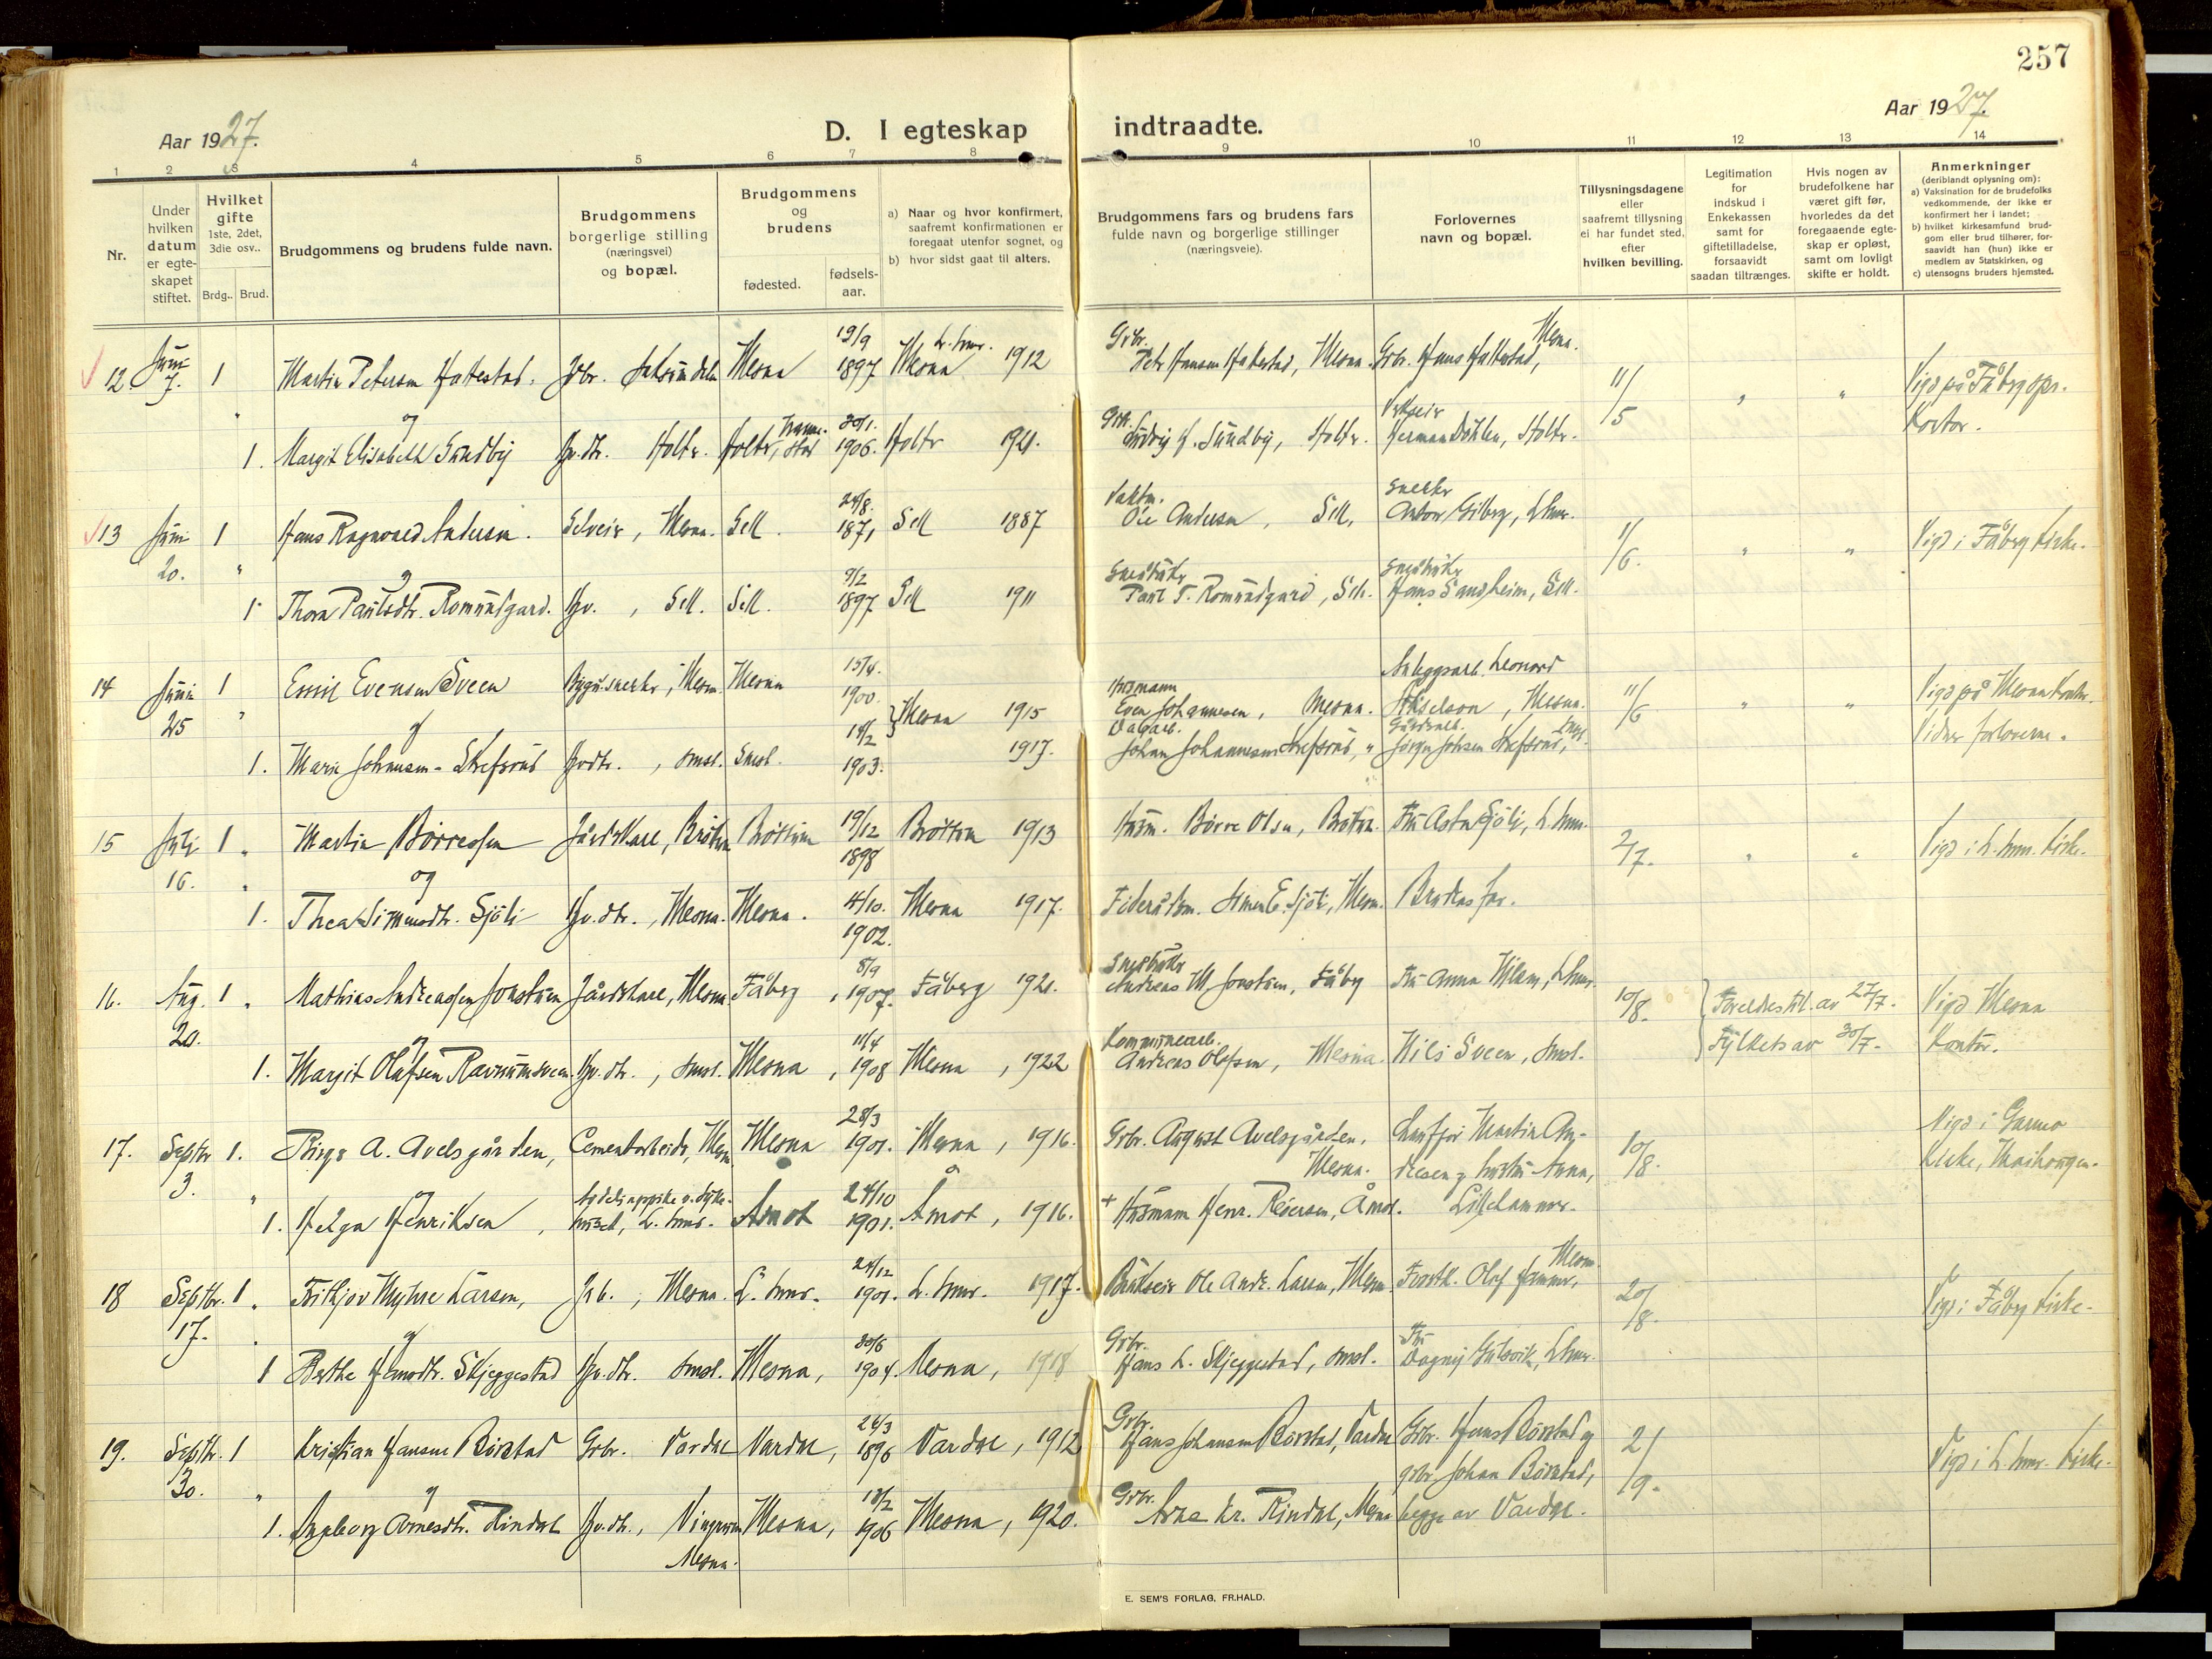 257
Aar 1927.
D. I egteskap indtraadte.
Aar 1927.
1 2 3 4 5 6 7 8 9 10 11 12 13 14
Nr.
Under hvilken datum er egteskapet stiftet.
Hvilket gifte 1ste, 2det, 3die osv..
Brdg.. Brud.
Brudgommens og brudens fulde navn.
Brudgommens borgerlige stilling (næringsvei) og bopæl.
Brudgommens og brudens
fødested.
fødselsaar.
a) Naar og hvor konfirmert, saafremt konfirmationen er foregaat utenfor sognet, og
b) hvor sidst gaat til alters.
Brudgommens fars og brudens fars fulde navn og borgerlige stillinger (næringsveie).
Forlovernes navn og bopæl.
Tillysningsdagene eller saafremt tillysning ei har fundet sted, efter hvilken bevilling.
Legitimation for indskud i Enkekassen samt for giftetilladelse, forsaavidt saadan tiltrænges.
Hvis nogen av brudefolkene har været gift før, hvorledes da det foregaaende egteskap er opløst, samt om lovligt skifte er holdt.
Anmerkninger (deriblandt oplysning om):
a) Vaksination for de brudefolks vedkommende, der ikke er konfirmert her i landet;
b) hvilket kirkesamfund brudgom eller brud tilhører, forsaavidt han (hun) ikke er medlem av Statskirken, og
c) utensogns bruders hjemsted.
12 Juni 7. 1 Martin Petersen Hattestad. Mesna 19/9 1897 Mesna L.hmr. 1912 Grbr. Petr Hansen Hattestad, Mesna. Grbr. Hans Hattestad, Mesna. 11/5 " " Vigd på Fåberg spr. kontor.
og
1. Margit Elisabeth Sundby Gr.dtr. Holtr. Holtr, 30/1. 1906. Holtr 1921. Ludvig H. Sundby, Holtr. Herman Dæhlen, Holtr.
13 Juni 20. 1 Hans Ragnvald Andersen. Selveir, Mesna. Sell. 24/8. 1871, Sell 1887 Ole Andersen, Sell, Snekkr Anton Gilberg, Lhmr. 11/6. " " Vigd i Fåberg kirke.
og
1 Thora Paulsdtr. Romundgard. Gr., Sell. Sell. 9/2 1897 Sell 1911 Paul T. Romundgard, Sell. Hans Sandheim, Sell.
14 Juni 25 1 Emil Evensen Sveen Bygn.snekkr, Mesna. Mesna 15/4. 1900. Mesna 1915 Husmann Even Johannesen, Mesna. Anleggsarb. Leonard Akselson, Mesna. 11/6 " " Vigd på Mesna kontor. Vidner forloverne.
og
1. Marie Johansen-Skrefsrud Gr.dtr., smst. Smst. 18/2 1903. 1917. Johan Johannesen Skrefsrud, " Gårdsarb. Jørgen Johsen Skrefsrud,
15 Juli 16. 1 " Martin Børresen Gårdskarl, Brøttum Brøttum 19/12 1898 Brøttum 1913 Husm. Børre Olsen, Brøttum. Fru Asta Sjøli, L.hmr. 2/7. " " Vigd i L.hmr. kirke.
og
1. Thea Simensdtr. Sjøli Gr.dtr., Mesna. Mesna. 4/10. 1902. Mesna 1917. Simen E. Sjøli, Mesna. Brudens far.
16. Aug. 20. 1 " Mathias Andreassen Jonstuen Gårdskarl, Mesna Fåberg, 8/9 1907. Fåberg 1921. Andreas M. Jonstuen, Fåberg Fru Anna Nilsen, Lhmr. 10/8. Foreldres til. av 27/7. Fylkets av 30/7. Vigd Mesna kontor.
og
1. Margit Olafsen Ravnumsveen Gr.dtr., smst. Mesna, 11/4 1908 Mesna, 1922 Kommunearb. Andreas Olafsen, Mesna. Nils Sveen, smst.
17. Septbr 3. 1. Birger A. Avelsgården, Cementarbeider, Mesna Mesna 28/3 1901. Mesna, 1916. Grbr. August Avelsgården, Mesna. Martin Andresen og hustru Anna, Lillehammer. 10/8. Vigd i Garmo kirke, Maihaugen.
og
1. Helga Henriksen, L. hmr. Åmot 24/10 1901. Åmot, 1916. + Husmann Henr. Reiersen, Åmot.
18 Septbr. 17. 1 " Fritjov Myhre Larsen, Grb., Mesna. L. hmr. 24/12 1901. L. hmr. 1917. Brukseier Ole Andr. Larsen, Mesna. Forstk. Olaf Hammer, Mesna. 20/8. Vigd i Fåberg kirke.
og
1 Berthe Hansdtr. Skjeggestad Gr.dtr. smst. Mesna, 30/6 1904. Mesna, 1918 Grbr. Hans L. Skjeggestad, smst. Fru Dagny Gulsvik, Lhmr.
19. Septbr. 30. 1 Kristian Hansen Børstad Grbr. Vardal Vardal, 24/3 1896 Vardal, 1912 Grbr. Hans Johansen Børstad, Vardal Grbr. Hans Børstad og grbr Johan Børstad, begge av Vardal. 2/9. Vigd i L.hmr. kirke.
og
1. Ingeborg Arnesdtr. Rindal Gr.dtr., Mesna. Mesna, 18/2 1906 Mesna, 1920. Grbr. Arne Kr. Rindal, Mesna
E. SEM'S FORLAG, FR.HALD.